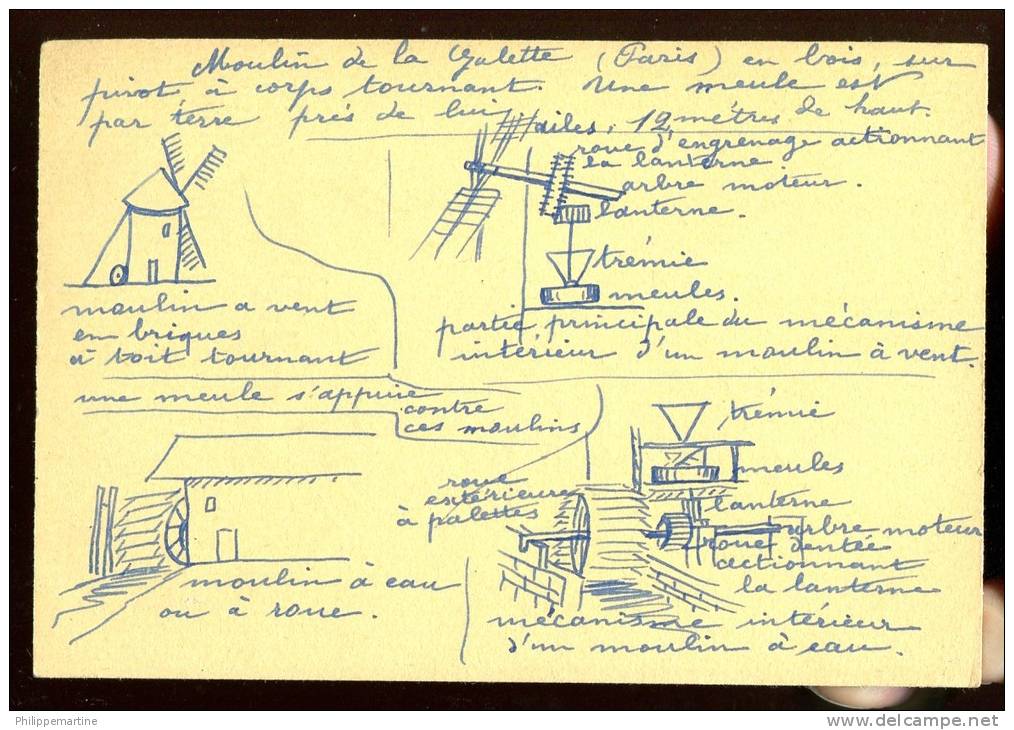 Moulin de la Galette (Paris) en bois, sur
pivot à corps tournant. Une meule est
par terre près de lui
ailes, 12 mètres de haut.
roue d'engrenage actionnant
la lanterne.
arbre moteur.
lanterne.
trémie
meules.
moulin a vent
en briques
à toit tournant
partie principale du mécanisme
intérieur d'un moulin à vent.
une meule s'appuie
contre
ces moulins
trémie
meules
roue
extérieure
à palettes
lanterne
arbre moteur
roue dentée
actionnant
la lanterne
moulin à eau
ou à roue.
mécanisme intérieur
d'un moulin à eau.
Philippemartine
www.delcampe.net